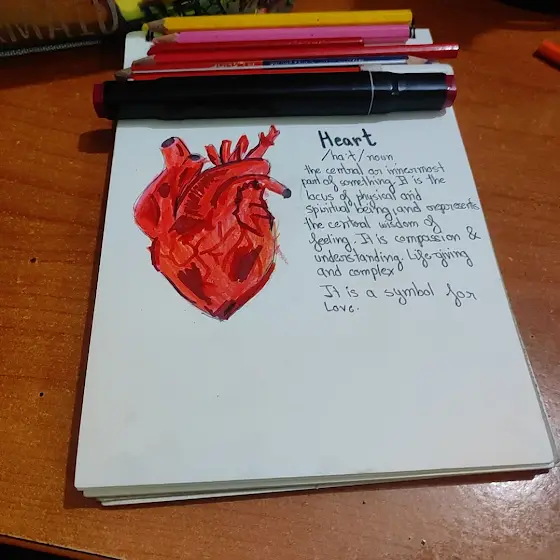 Heart
/ha:t/noun
the central or innermost
part of something. It is the
locus of physical and
spiritual being, and represents
the central wisdom of
feeling. It is compassion &
understanding. Life-giving
and complex
It is a symbol for
Love.